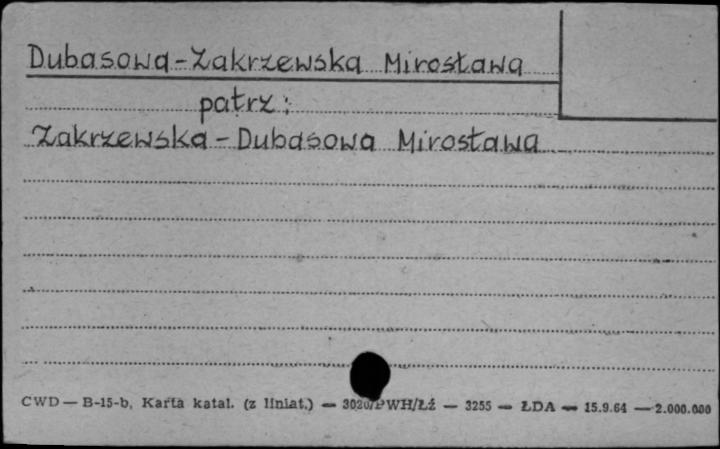 Dubasowa-Zakrzewska Mirosława
patrz:
Zakrzewska-Dubasowa Mirosława
CWD — B-15-b, Karta katal. (z liniat.) — 3020/PWH/Łź — 3255 — ŁDA — 15.9.64 — 2.000.000